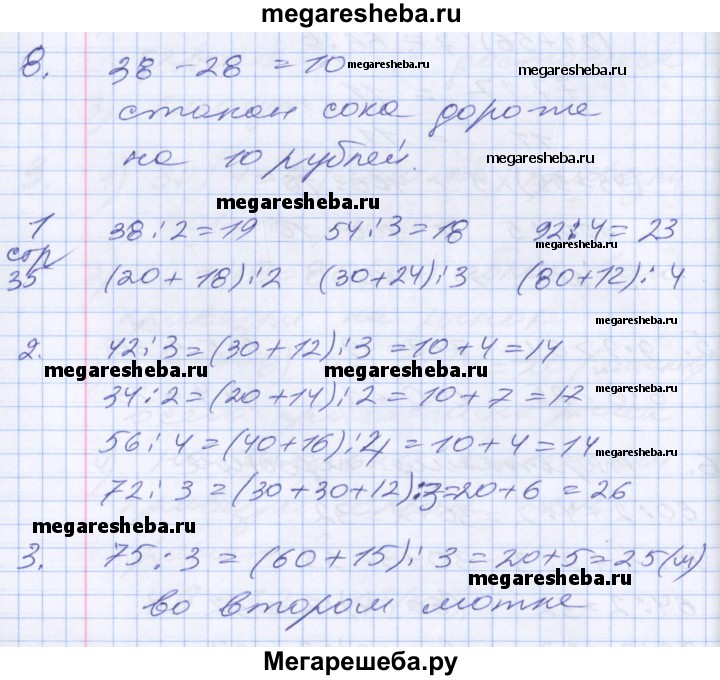 megaresheba.ru
8. 38 - 28 = 10 megaresheba.ru megaresheba.ru
стакан сока дороже
на 10 рублей. megaresheba.ru
megaresheba.ru
1 38 : 2 = 19 54 : 3 = 18 92 : 4 = 23
стр megaresheba.ru
35 (20 + 18) : 2 (30 + 24) : 3 (80 + 12) : 4
megaresheba.ru
2. 42 : 3 = (30 + 12) : 3 = 10 + 4 = 14
megaresheba.ru megaresheba.ru
34 : 2 = (20 + 14) : 2 = 10 + 7 = 17 megaresheba.ru
56 : 4 = (40 + 16) : 4 = 10 + 4 = 14
megaresheba.ru
72 : 3 = (30 + 30 + 12) : 3 = 20 + 6 = 26
megaresheba.ru
3. 75 : 3 = (60 + 15) : 3 = 20 + 5 = 25 (м)
megaresheba.ru
во втором мотке
Мегарешеба.ру